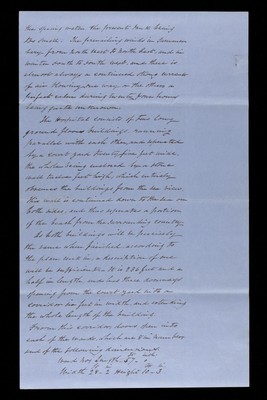 the spring water the present tank being
The prevailing winds in summer
very from North West to North East, and in
winter South to South West, and there is
almost always a continued strong current
of air blowing one way or the other a
perfect
being quite unknown
The Hospital consists of two long
ground floored buildings, running
parallel with each other, and separated
by a court yard twenty five feet wide
the whole being enclosed by a stone
wall twelve feet high, which entirely
the buildings from the two sides.
This wall is continued down to the sea on
both sides, and thus separates a portion
of the beach from the surrounding country.
As both buildings will be precisely
the same when finished, according to
the plan sent in, a description of one
will be sufficient. It is 236 feet and a
half in length, and has three
from the court yard into a
corridor six feet in width, and extending
the whole length of the building.
From this corridor, doors open into
each of the wards which are six in number
and of the following dimensions.
Ward No 1 Length 57
Width 24. 2 Height 10. 5